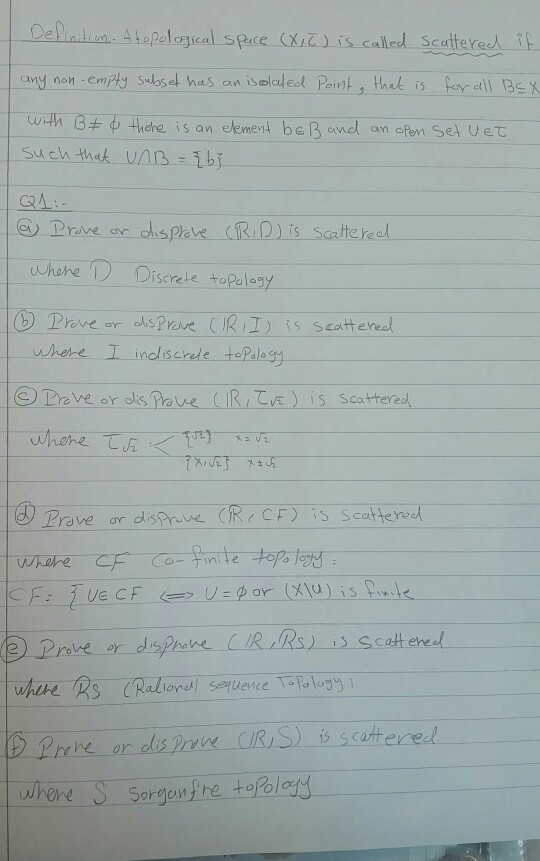 Definition:- A topological space (X,τ) is called scattered if
any non-empty subset has an isolated Point, that is for all B⊆X
with B≠φ there is an element b∈B and an open set U∈τ
such that U∩B = {b}
Q1:-
(a) Prove or disprove (R,D) is scattered
where D Discrete topology
(b) Prove or disprove (R,I) is scattered
where I indiscrete topology
(c) Prove or disprove (R,τ√2) is scattered
where τ√2 : < {√2} x=√2
{x,√2} x≠√2
(d) Prove or disprove (R, CF) is scattered
where CF Co-finite topology:
CF = { U∈CF ⟺ U = φ or (X\U) is finite
(e) Prove or disprove (R,RS) is scattered
where RS (Rational sequence Topology)
(f) Prove or disprove (R,S) is scattered
where S Sorganfre topology